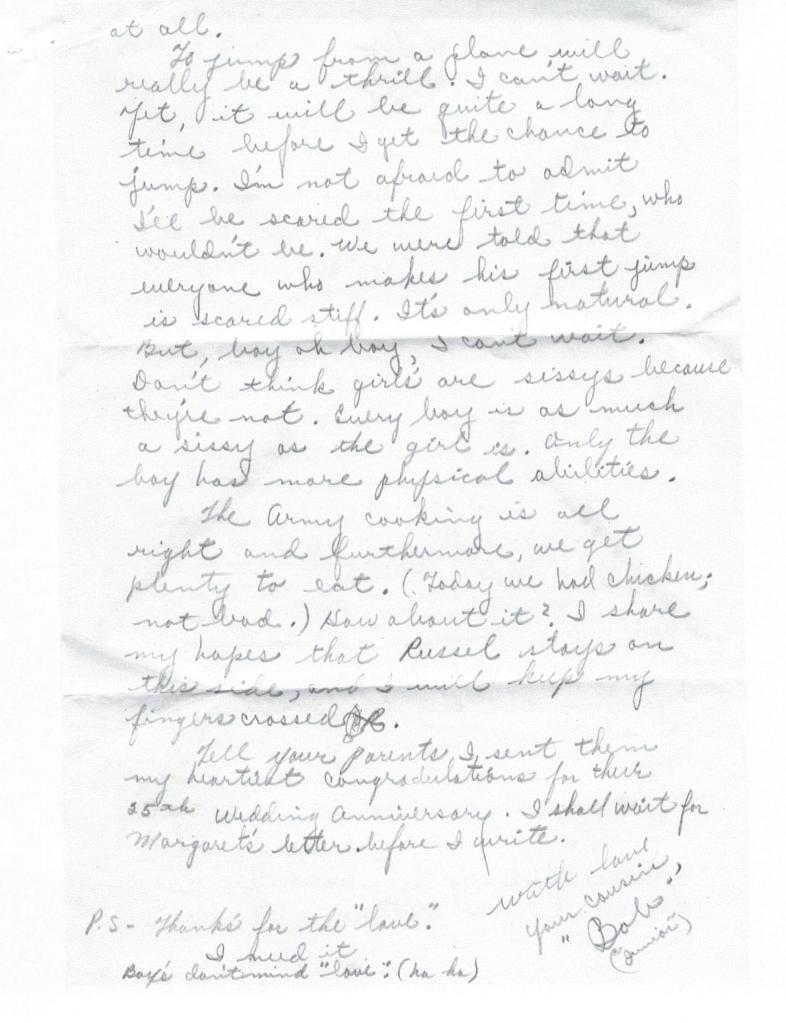 at all.
To jump from a plane will
really be a thrill. I can't wait.
Yet, it will be quite a long
time before I get the chance to
jump. I'm not afraid to admit
I'll be scared the first time, who
wouldn't be. We were told that
everyone who makes his first jump
is scared stiff. It's only natural.
But, boy oh boy, I can't wait.
Don't think girls' are sissys because
they're not. Every boy is as much
a sissy as the girl is. Only the
boy has more physical abilities.
The Army cooking is all
right and furthermore, we get
plenty to eat. (Today we had chicken;
not bad.) How about it? I share
my hopes that Russel stays on
this side, and I will keep my
fingers crossed.
Tell your parents I sent them
my heartiest congradulations for their
25th Wedding Anniversary. I shall wait for
Margaret's letter before I write.
With love
your cousin,
"Bob"
(Junior)
P.S- Thanks for the "love".
I need it
Boy's don't mind "love". (ha ha)